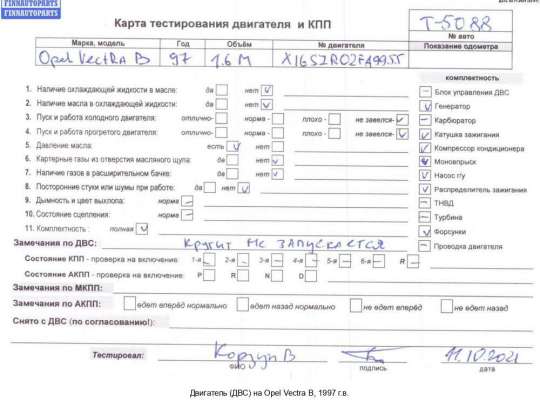 FINNAUTOPARTS
FINNAUTOPARTS
Карта тестирования двигателя и КПП
Т-5088
№ авто
Марка, модель Год Объём № двигателя Показание одометра
Opel Vectra B 97 1.6 М
комплектность
1. Наличие охлаждающей жидкости в масле: да нет v
2. Наличие масла в охлаждающей жидкости: да нет v
3. Пуск и работа холодного двигателя: отлично- норма - плохо - не завелся- v
4. Пуск и работа прогретого двигателя: отлично- норма - плохо - не завелся- v
5. Давление масла: есть v нет
6. Картерные газы из отверствия масляного щупа: да нет v
7. Наличие газов в расширительном бачке: да нет v
8. Посторонние стуки или шумы при работе: да нет v
9. Дымность и цвет выхлопа: норма –
10. Состояние сцепления: норма –
11. Комплектность : полная v
– Блок управления ДВС
v Генератор
– Карбюратор
v Катушка зажигания
v Компрессор кондиционера
v Моновпрыск
v Насос г/у
v Распределитель зажигания
– ТНВД
– Турбина
v Форсунки
– Проводка двигателя
Замечания по ДВС: Крутит не запускается
Состояние КПП - проверка на включение: 1-я – 2-я – 3-я – 4-я – 5-я – 6-я – R –
Состояние АКПП - проверка на включение: P R N D
Замечания по МКПП:
Замечания по АКПП: едет вперёд нормально едет назад нормально не едет вперед не едет назад
Снято с ДВС (по согласованию!):
Тестировал: Корзун В 11.10.2021
ФИО подпись дата
Двигатель (ДВС) на Opel Vectra B, 1997 г.в.